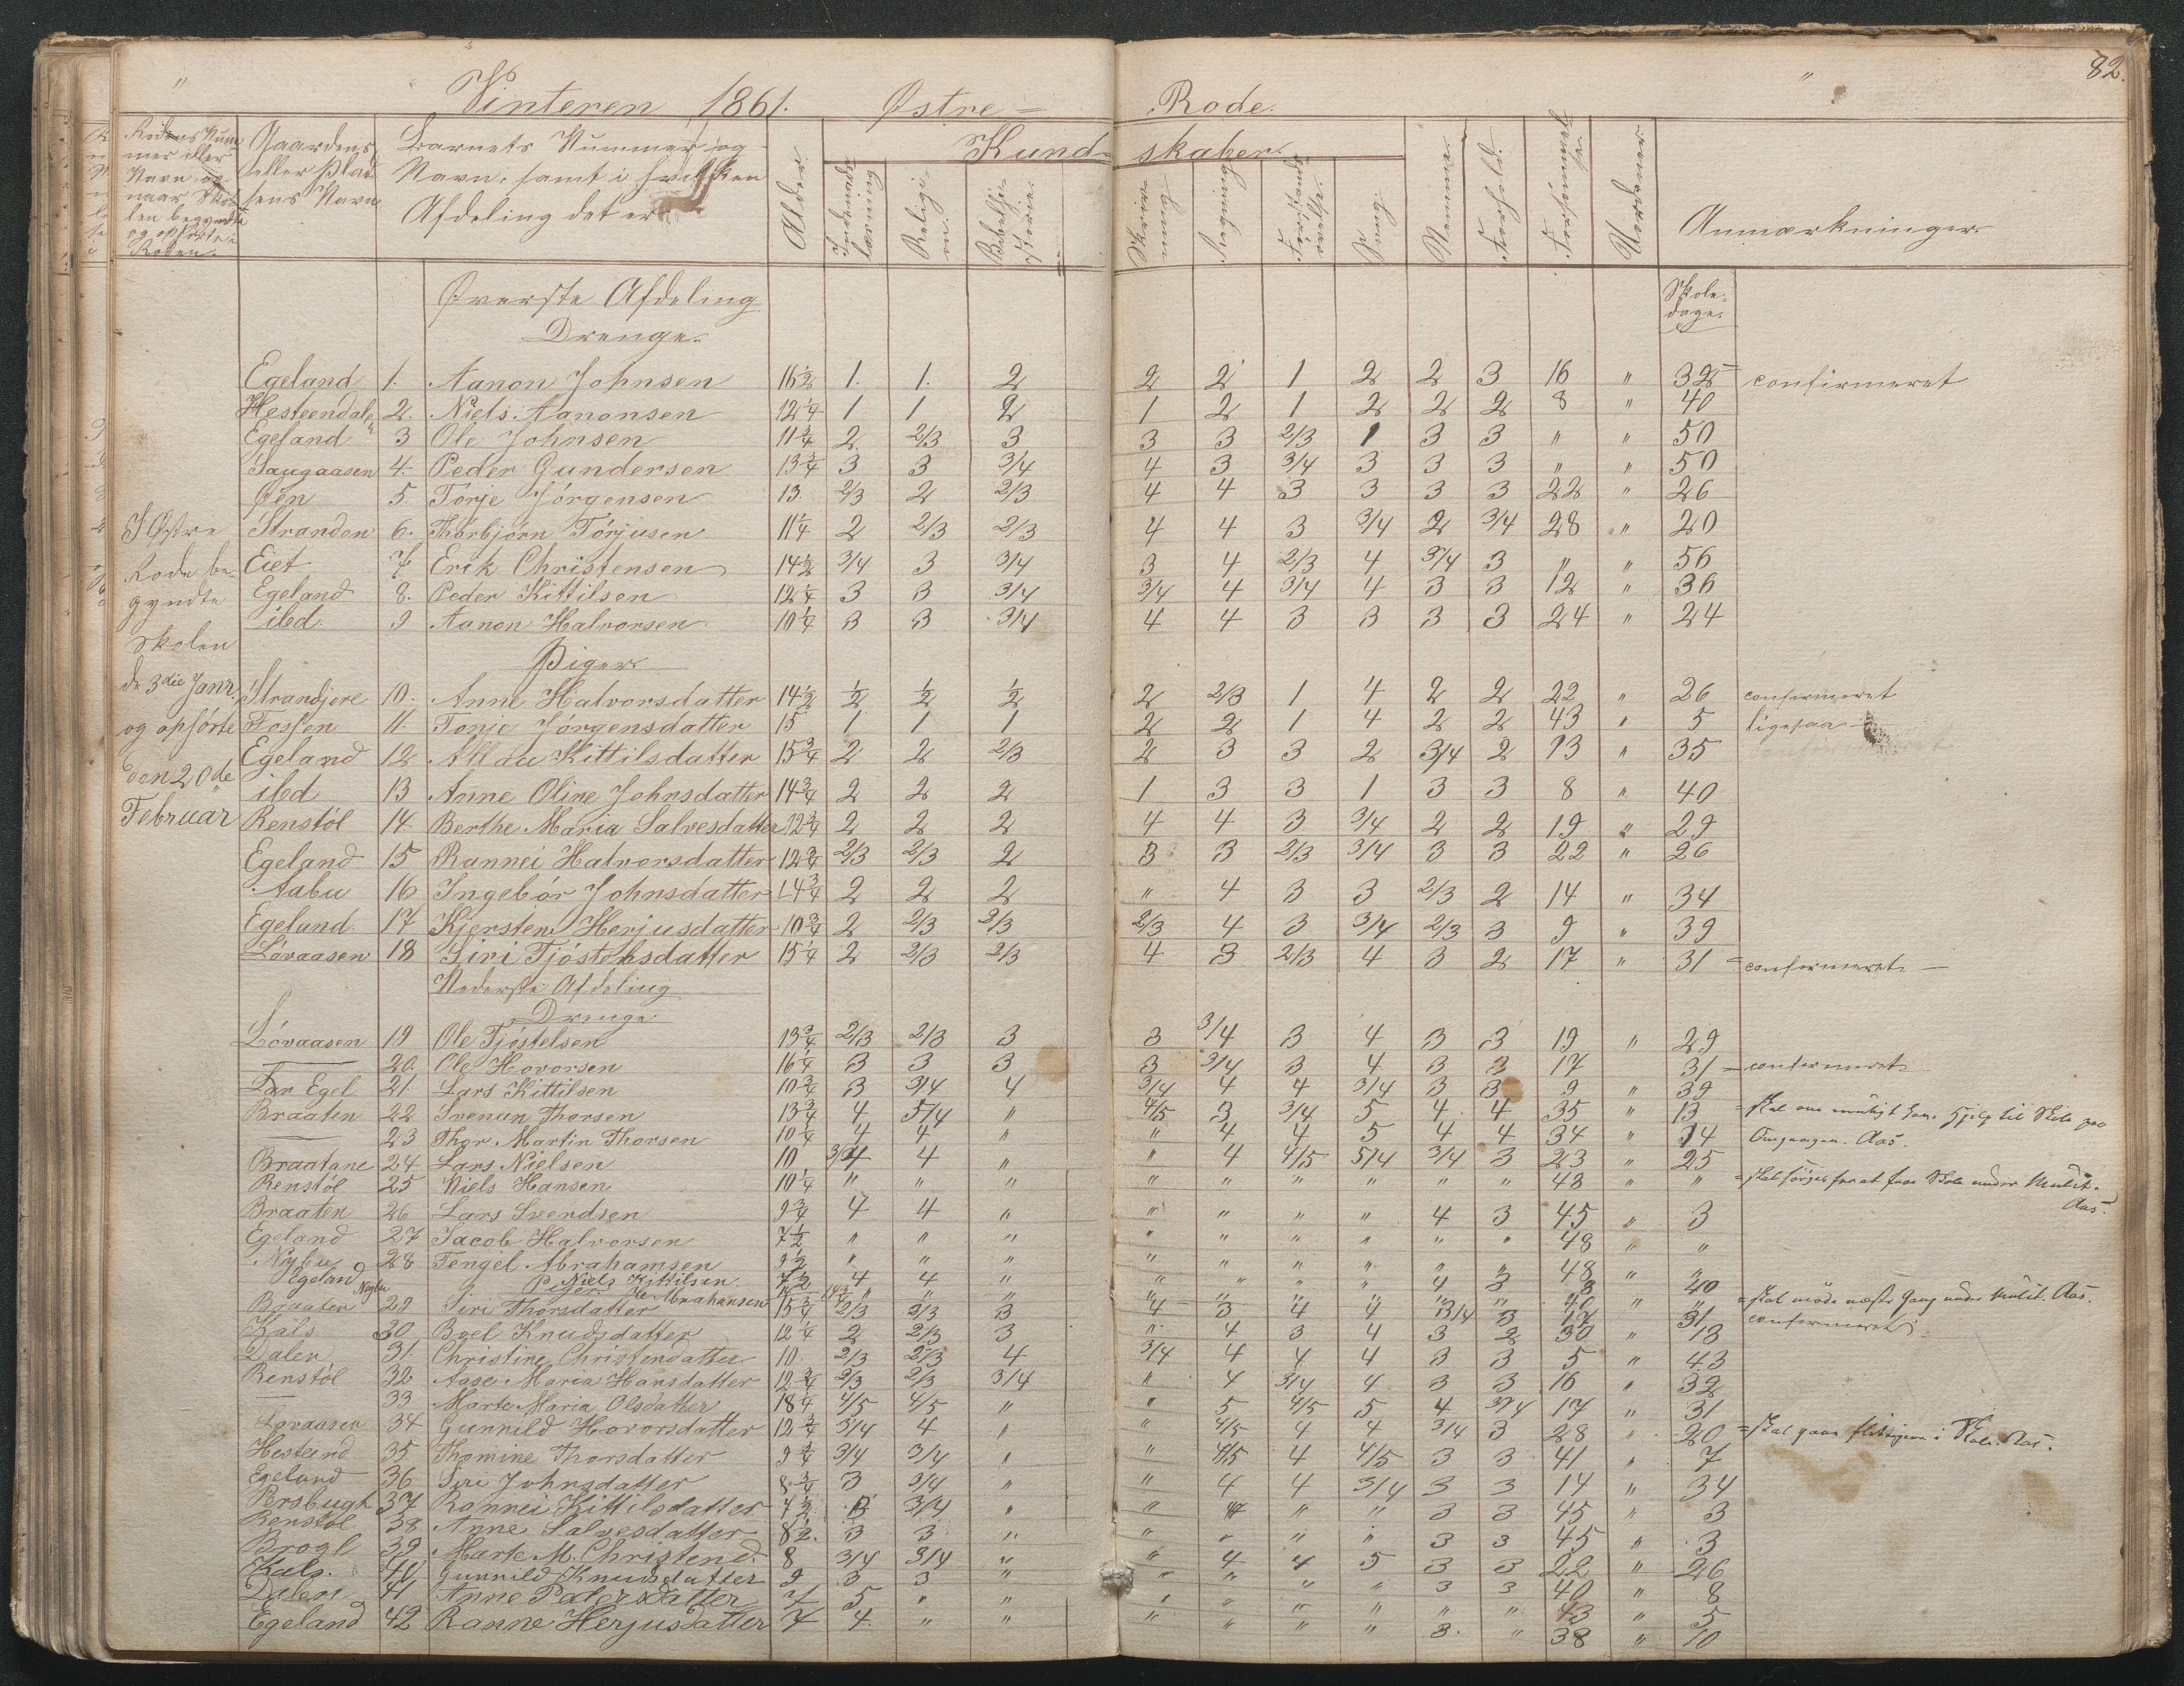 " Vinteren 1861. Østre = Rode. " 82.
Rodens Num-
mer eller
Navn, og
naar Sko-
len begyndte
og ophørte i
Roden.
Gaardens
eller Plad-
sens Navn
Barnets Nummer og
Navn, samt i hvilken
Afdeling det er
Alder.
Kund- skaber.
Indenads-
læsning
Religi-
on
Bibelhi-
storie.
Skriv-
ning
Regning
Forstands
øvelse.
Sang.
Nemme.
Forhold.
Forsømmel-
se.
Anmærkninger.
Øverste Afdeling
Drenge.
Skole-
dage.
Egeland 1. Aanon Johnsen 16½ 1. 1. 2 2 2 1 2 2 3 16 " 32 = confirmeret
Hesteendalen 2. Niels Aanonsen 12¼ 1 1 2 1 2 1 2 2 2 8 " 40
Egeland 3 Ole Johnsen 11¾ 2 2/3 3 3 3 2/3 1 3 3 " " 50
Saugaasen 4. Peder Gundersen 13¾ 3 3 3/4 4 3 3/4 3 3 3 " " 50
Øen 5. Torje Jörgensen 13. 2/3 2 2/3 4 4 3 3 3 3 22 " 26
Stranden 6. Thorbjørn Törjusen 11¼ 2 2/3 2/3 4 4 3 3/4 2 3/4 28 " 20
Eiet 7 Erik Christensen 14½ 3/4 3 3/4 3 4 2/3 4 3/4 3 " " 56
Egeland 8. Peder Kittilsen 12¼ 3 3 3/4 3/4 4 3/4 4 3 3 12 " 36
ibd. 9 Aanon Halvorsen 10¼ 3 3 3/4 4 4 3 3 3 3 24 " 24
I Østre
Rode be-
gyndte
Skolen
d. 3die Janr.
og ophörte
den 20de
Februar
Piger.
Strandjere 10. Anne Halvorsdatter 14½ ½ ½ ½ 2 2/3 1 4 2 2 22 " 26 confirmeret
Fossen 11. Tonje Jörgensdatter 15 1 1 1 2 2 1 4 2 2 43 " 5 ligesaa
Egeland 12 Kittilsdatter 15¾ 2 2 2/3 2 3 3 2 3/4 2 13 " 35
ibd 13 Anne Oline Johnsdatter 14¾ 2 2 2 1 3 3 1 3 3 8 " 40
Renstöl 14 Berthe Maria Salvesdatter 12¾ 2 2 2 4 4 3 3/4 2 2 19 " 29
Egeland 15 Rannei Halvorsdatter 12¾ 2/3 2/3 2 3 3 2/3 3/4 3 3 22 " 26
Aabu 16 Ingebör Johnsdatter 14¾ 2 2 2 " 4 3 3 2/3 2 14 " 34
Egeland. 17 Kjersten Herjusdatter 10¾ 2 2/3 2/3 2/3 4 3 3/4 2/3 3 9 " 39
Lövaasen 18 Siri Tjöstelsdatter 15¼ 2 2/3 2/3 4 3 2/3 4 3 2 17 " 31 = confirmeret
Nederste Afdeling
Drenge
Lövaasen 19 Ole Tjöstelsen 13¾ 2/3 2/3 3 3 3/4 3 4 3 3 19 " 29
— 20. Ole Hovorsen 16¼ 3 3 3 3 3/4 3 4 3 3 17 31 = confirmeret
Egel 21. Lars Kittilsen 10¾ 3 3/4 4 3/4 4 4 3/4 3 3 9 " 39
Braaten 22 Svenun Thorsen 13¾ 4 5/4 " 4/5 3 3/4 5 4. 4 35 " 13 = skal om muligt have Hjelp til Skole paa
— 23 Thor Martin Thorsen 10¼ 4 4 " " 4 4 5 4 4 34 " 14 Omgangen. Aas.
Braatane 24 Lars Nielsen 10 3/4 4 " " 4 4/5 5/4 3/4 3 23 " 25
Renstöl 25 Niels Hansen 10¼ " " " " " " " " " 48 " " = skal sörges for at faae Skole under Mulct.
Aas.
Braaten 26 Lars Svendsen 9¾ 4 4 " " " " " 4 3 45 " 3
Egeland 27 Jacob Halvorsen 7½ " " " " " " " " " 48 " "
Nybu 28 Tengel Abrahamsen 9½ " " " " " " " " " 48 " "
Egeland Niels Kittilsen. 7½ 4 4 " " " " " 4 3 8 40
Nybu Piger. Abrahamsen " " " " " " " " " 40 " " = skal möde næste Gang under Mulct. Aas.
Braaten 29 Siri Thorsdatter 15¾ 2/3 2/3 3 4 3 4 4 3/4 3 17 31 confirmeret
Kåls 30 Boel Knudsdatter 12¼ 2 2/3 3 " 4 3 4 3 2 30 " 18
Dalen 31. Christine Christensdatter 10 2/3 2/3 4 3/4 4 4 4 3 3 5 " 43
Renstöl 32 Aase Maria Hansdatter 12¾ 2/3 2/3 3/4 " 4 3/4 4 3 3 16 " 32
— 33 Marte Maria Olsdatter 18¼ 4/5 4/5 " " 5 4/5 5 4 3/4 17 " 31
Lövaasen 34 Gunnild Hovorsdatter 12¾ 3/4 4 " " 4/5 4 4 3/4 3 28 " 20 = skal gaae flittigere i Skole. Aas.
Hesteend 35 Thomine Thorsdatter 9¾ 3/4 3/4 " " 4/5 4 4/5 3 3 41 " 7
Egeland 36 Siri Johnsdatter 8¾ 3 3/4 " " 4 4 3/4 3 3 14 " 34
Persbugt 37 Rannei Kittilsdatter 7½ 3 3/4 " " " " " 3 3 45 " 3
Renstöl 38 Anne Salvesdatter 8½. 3 3 " " " " " 3 3 45 " 3
Brogl 39 Marte M. Christend. 8 3/4 3/4 " " 4 4 5 3 3 22 " 26
Kåls. 40 Gunnild Knudsdatter 9 3 3 " " " " " 3 3 40 " 8
Dalen 41 Anne Pedersdatter 7 5 " " " " " " " " 43 " 5
Egeland 42 Ranne Herjusdatter 7 4. " " " " " " 3. " 38 " 10